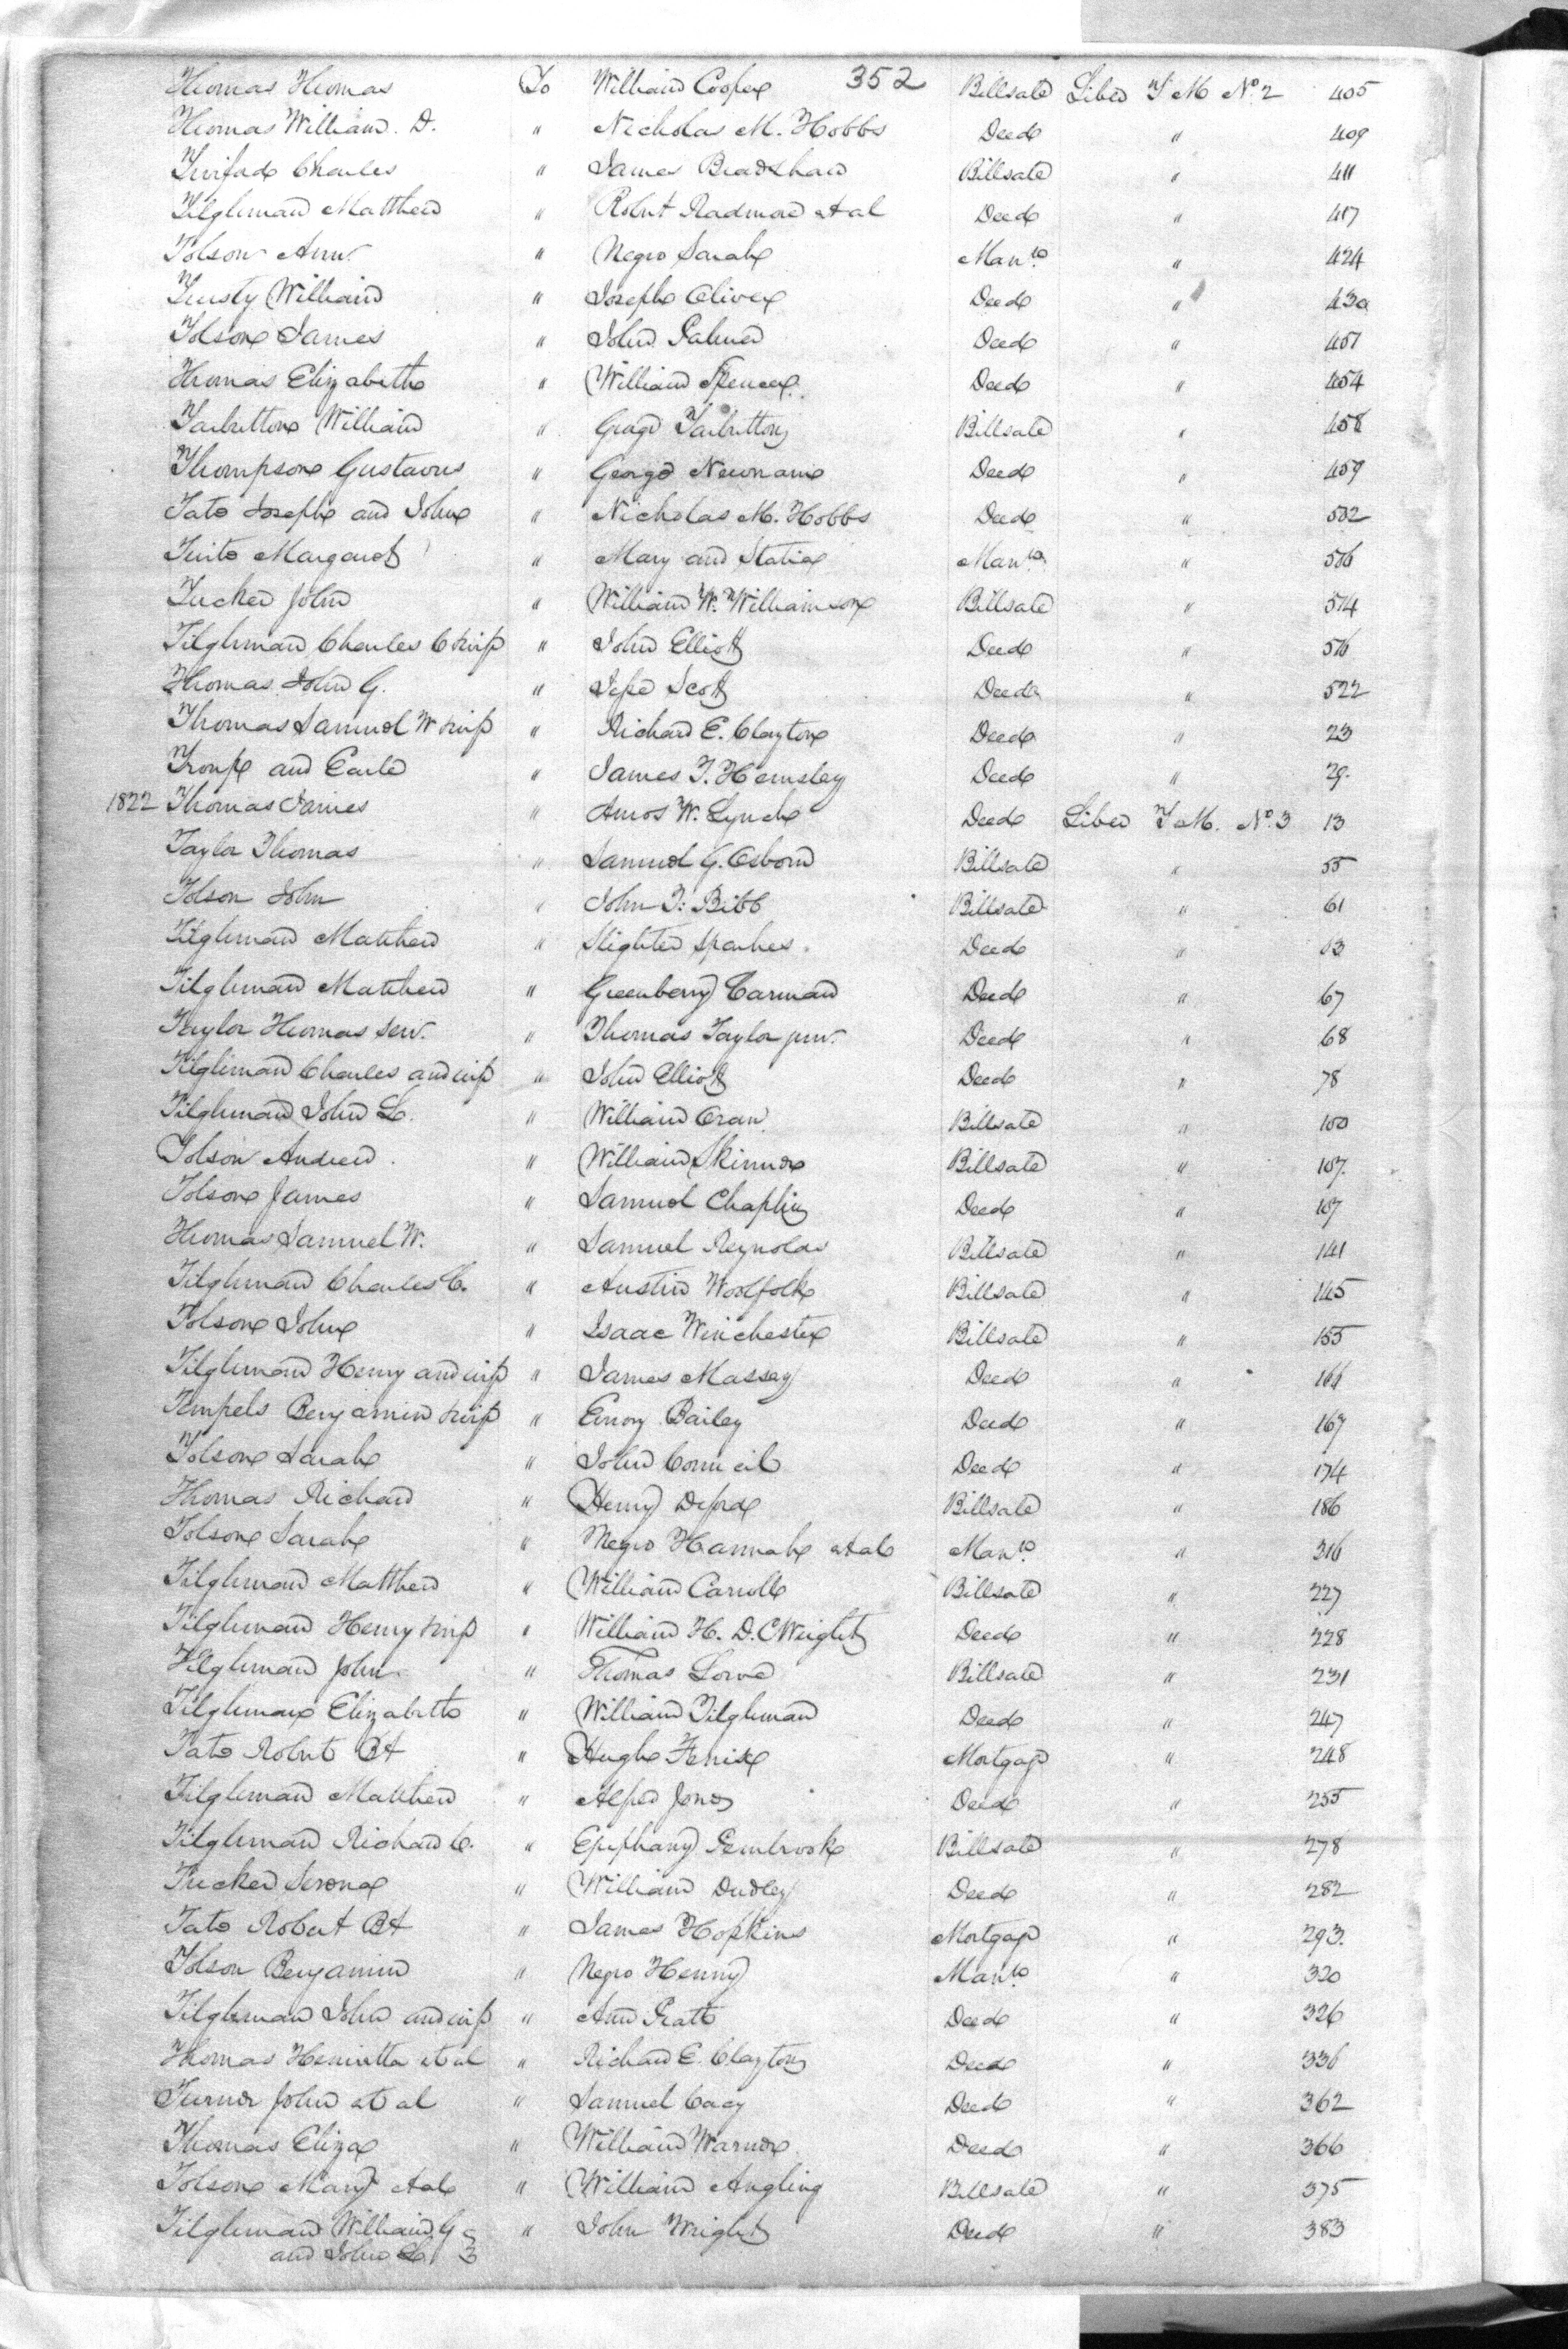 352
Thomas Thomas To William Cooper Billsale Liber T M No. 2 405
Thomas William. D. " Nicholas M. Hobbs Deed " 409
Charles " James Bradshaw Billsale " 411
Tilghman Matthew " Robert Radmore et al Deed " 417
Tolson Ann " Negro Sarah Manto " 424
Trusty William " Joseph Oliver Deed " 430
Tolson James " John Palmer Deed " 451
Thomas Elizabeth " William Spencer Deed " 454
Tarbutton William " George Tarbutton Billsale " 458
Thompson Gustavus " George Newnam Deed " 459
Tate Joseph and John " Nicholas M. Hobbs Deed " 502
Margaret " Mary and Statia Manto "
Tucker John " William W. Williamson Billsale " 514
Tilghman Charles C & wife " John Elliott Deed " 516
Thomas John G. " Jesse Scott Deed " 522
Thomas Samuel W & wife " Richard E. Clayton Deed " 23
Troup and Earle " James T. Hemsley Deed " 29.
1822 Thomas James " Amos W. Lynch Deed Liber T M. No. 3 13
Taylor Thomas " Samuel G. Osborn Billsale " 55
Tolson John " John T. Bibb Billsale " 61
Tilghman Matthew " Slighter Sparkes. Deed "
Tilghman Matthew " Greenberry Carman Deed " 67
Taylor Thomas Senr. " Thomas Taylor junr. Deed " 68
Tilghman Charles and wife " John Elliott Deed " 78
Tilghman John L. " William Oran Billsale " 100
Tolson Andrew. " William Skinner Billsale " 107.
Tolson James " Samuel Chaplin Deed " 107
Thomas Samuel W. " Samuel Reynolds Billsale " 141
Tilghman Charles C. " Austin Woolfolk Billsale " 145
Tolson John " Isaac Winchester Billsale " 155
Tilghman Henry and wife " James Massey Deed " 166
Tempels Benjamin & wife " Emory Bailey Deed " 167
Tolson Sarah " John Council Deed " 174
Thomas Richard " Henry Deford Billsale " 186
Tolson Sarah " Negro Hannah et al Manto "
Tilghman Matthew " William Carroll Billsale " 227
Tilghman Henry & wife " William H. D. C Wright Deed " 228
Tilghman John " Thomas Lowe Billsale " 231
Tilghman Elizabeth " William Tilghman Deed " 247
Tate Robert Bt " Hugh Fenix Mortgage " 248
Tilghman Matthew " Alfred Jones Deed " 255
Tilghman Richard C. " Epiphany Pembrook Billsale " 278
Tucker Serena " William Dudley Deed " 282
Tate Robert Bt " James Hopkins Mortgage " 293.
Tolson Benjamin " Negro Henny Manto " 320
Tilghman John and wife " Ann Pratt Deed " 326
Thomas Henrietta et al " Richard E. Clayton Deed " 336
Turner John et al " Samuel Cacy Deed " 362
Thomas Eliza " William Warner Deed " 366
Tolson Mary et al " William Angling Billsale " 375
Tilghman William G " John Wright Deed " 383
and John L.